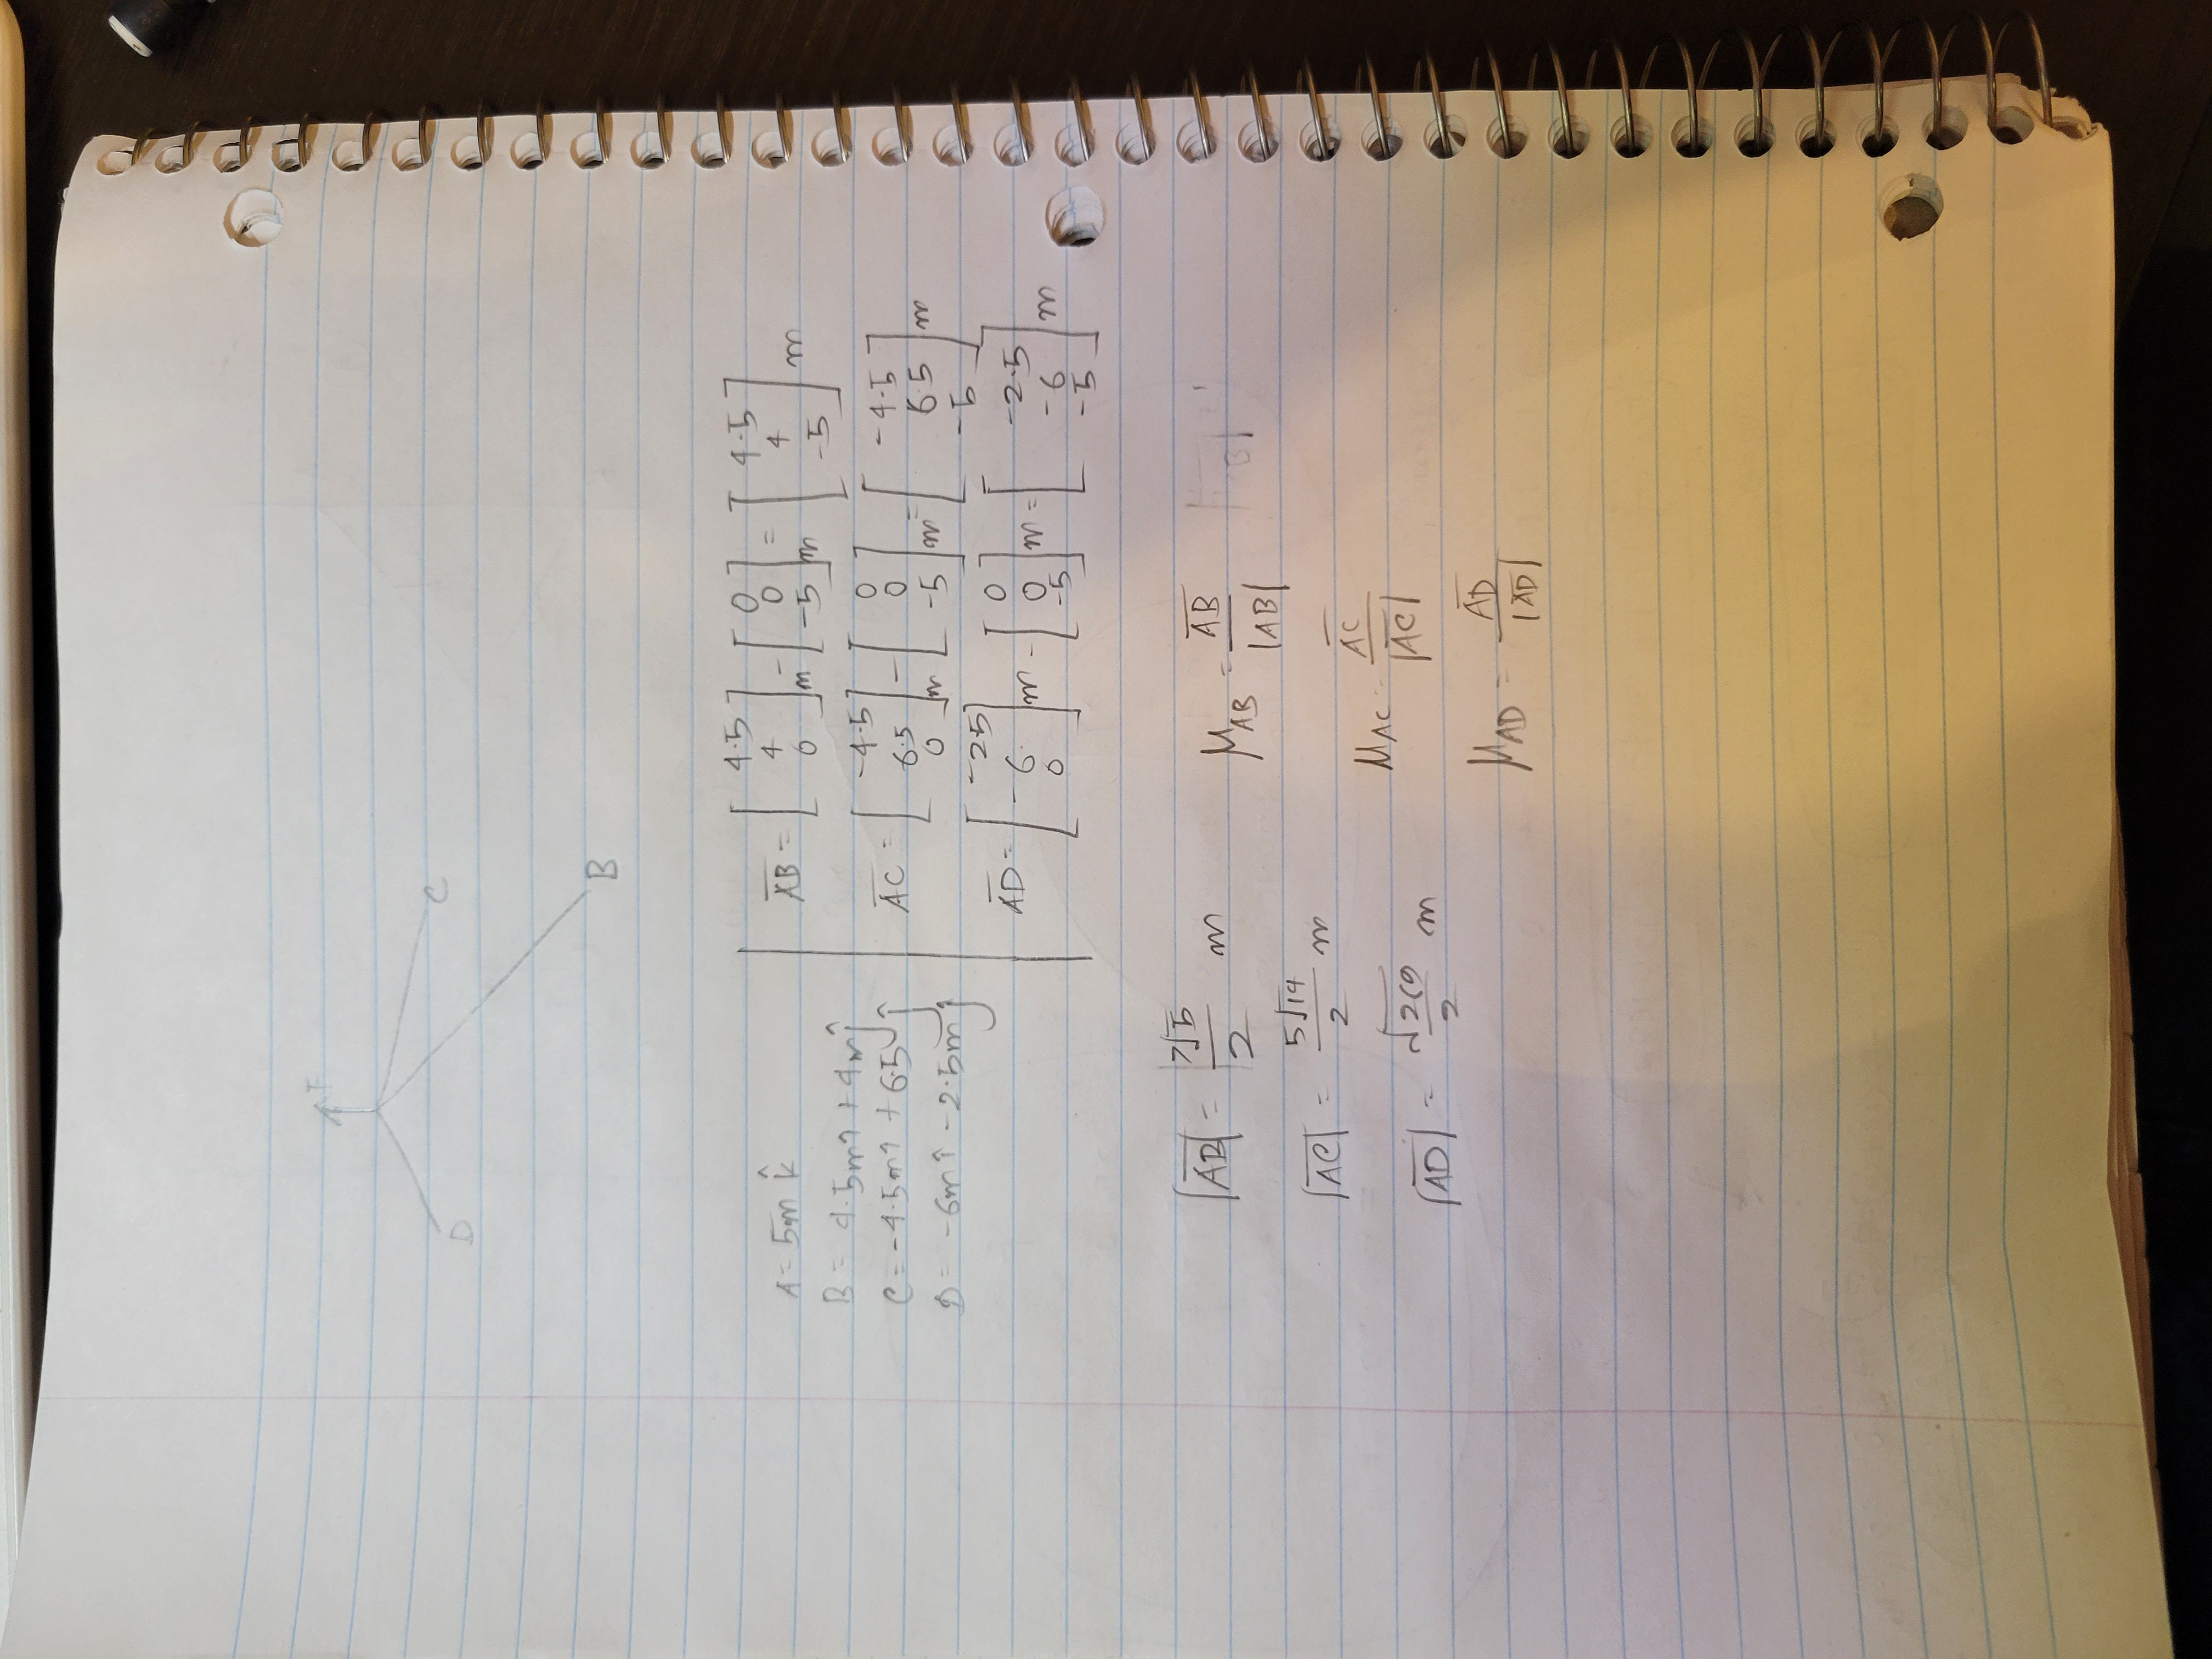 F
D
C
B
A = 5m k̂
B = 4.5m î + 4m ĵ
C = -4.5m î + 6.5 ĵ
D = -6m î - 2.5m ĵ
AB = [4.5 4 0] m - [0 0 -5] m = [4.5 4 -5] m
AC = [-4.5 6.5 0] m - [0 0 -5] m = [-4.5 6.5 -5] m
AD = [-2.5 -6 0] m - [0 0 -5] m = [-2.5 -6 -5] m
|AB| = 7√5/2 m
|AC| = 5√14/2 m
|AD| = √269/2 m
μAB = AB/|AB|
μAC = AC/|AC|
μAD = AD/|AD|